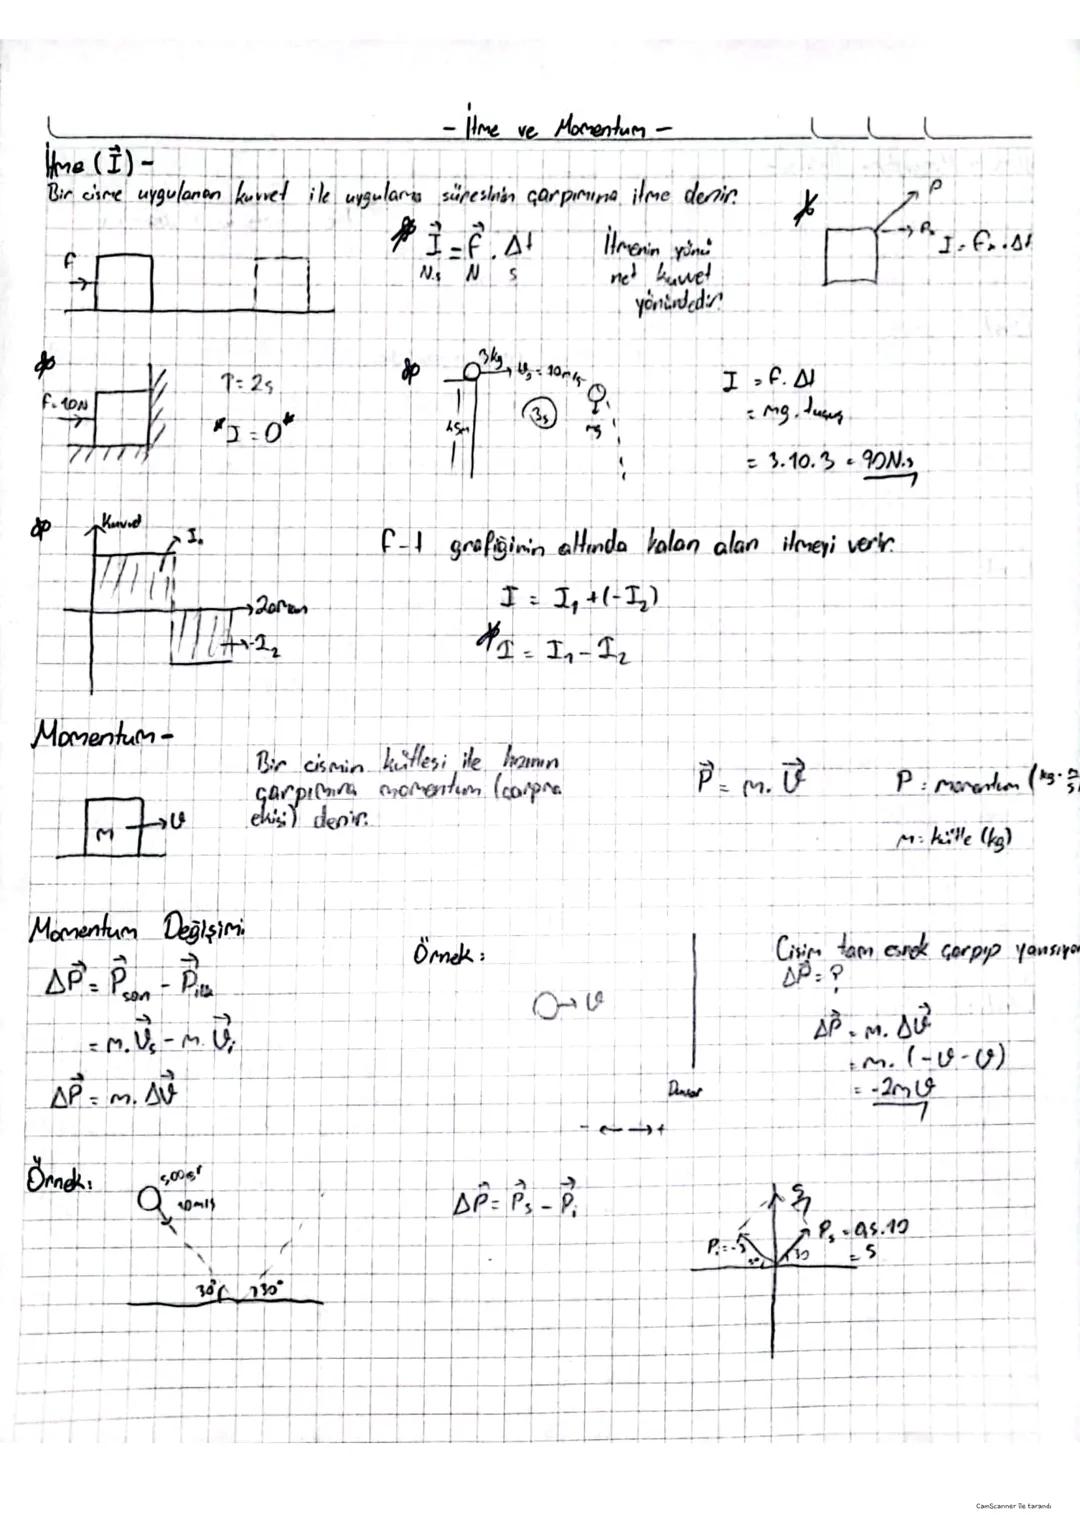 - İtme ve Momentum -
İtme (I) -
Bir cisme uygulanan kuvvet ile uygulama süresinin çarpımına itme denir.
I = F . Δt
N.s N s
İtmenin yönü
net kuvvet
yönündedir.
F
I = Fx . Δt
F = 10N
T = 2s
*I = 0*
3kg
10m/s
3s
45m
mg
I = F. Δt
= mg. tuçuş
= 3.10.3 = 90N.s
Kuvvet
Zaman
I₁
-I₂
F-t grafiğinin altında kalan alan itmeyi verir.
I = I₁ + (-I₂)
I = I₁ - I₂
Momentum -
Bir cismin kütlesi ile hızının
çarpımına momentum (çarpma
etkisi) denir.
m
υ
P = m. υ
P : momentum (kg. m/s
m: kütle (kg)
Momentum Değişimi
ΔP = Pson - Pilk
= m. υs - m. υi
ΔP = m. Δυ
Örnek :
υ
Duvar
- ←→ +
Cisim tam esnek çarpıp yansıyor
ΔP = ?
ΔP = m. Δυ
= m. (-υ-υ)
= -2mυ
Örnek:
500gr
10m/s
30° 30°
ΔP = Ps - Pi
Pi = -5
30
Ps = 0,5.10
= 5
CamScanner ile tarandı